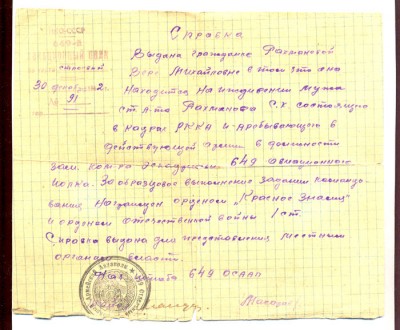 Справка
Выдана гражданке Рахмановой
Вере Михайловне в том что она
находится на иждивении мужа
ст. л-та Рахманова С.Х состоящего
в кадрах РККА и пребывающего в
действующей армии в должности
зам. ком-ра эскадрильи 649 авиационного
полка. За образцовое выполнение заданий командо-
вания, награжден орденом "Красное Знамя"
и орденом Отечественной войны 1 ст.
Справка выдана для представления местным
органам власти.
30 декабря 2
№ 91
Нач. штаба 649